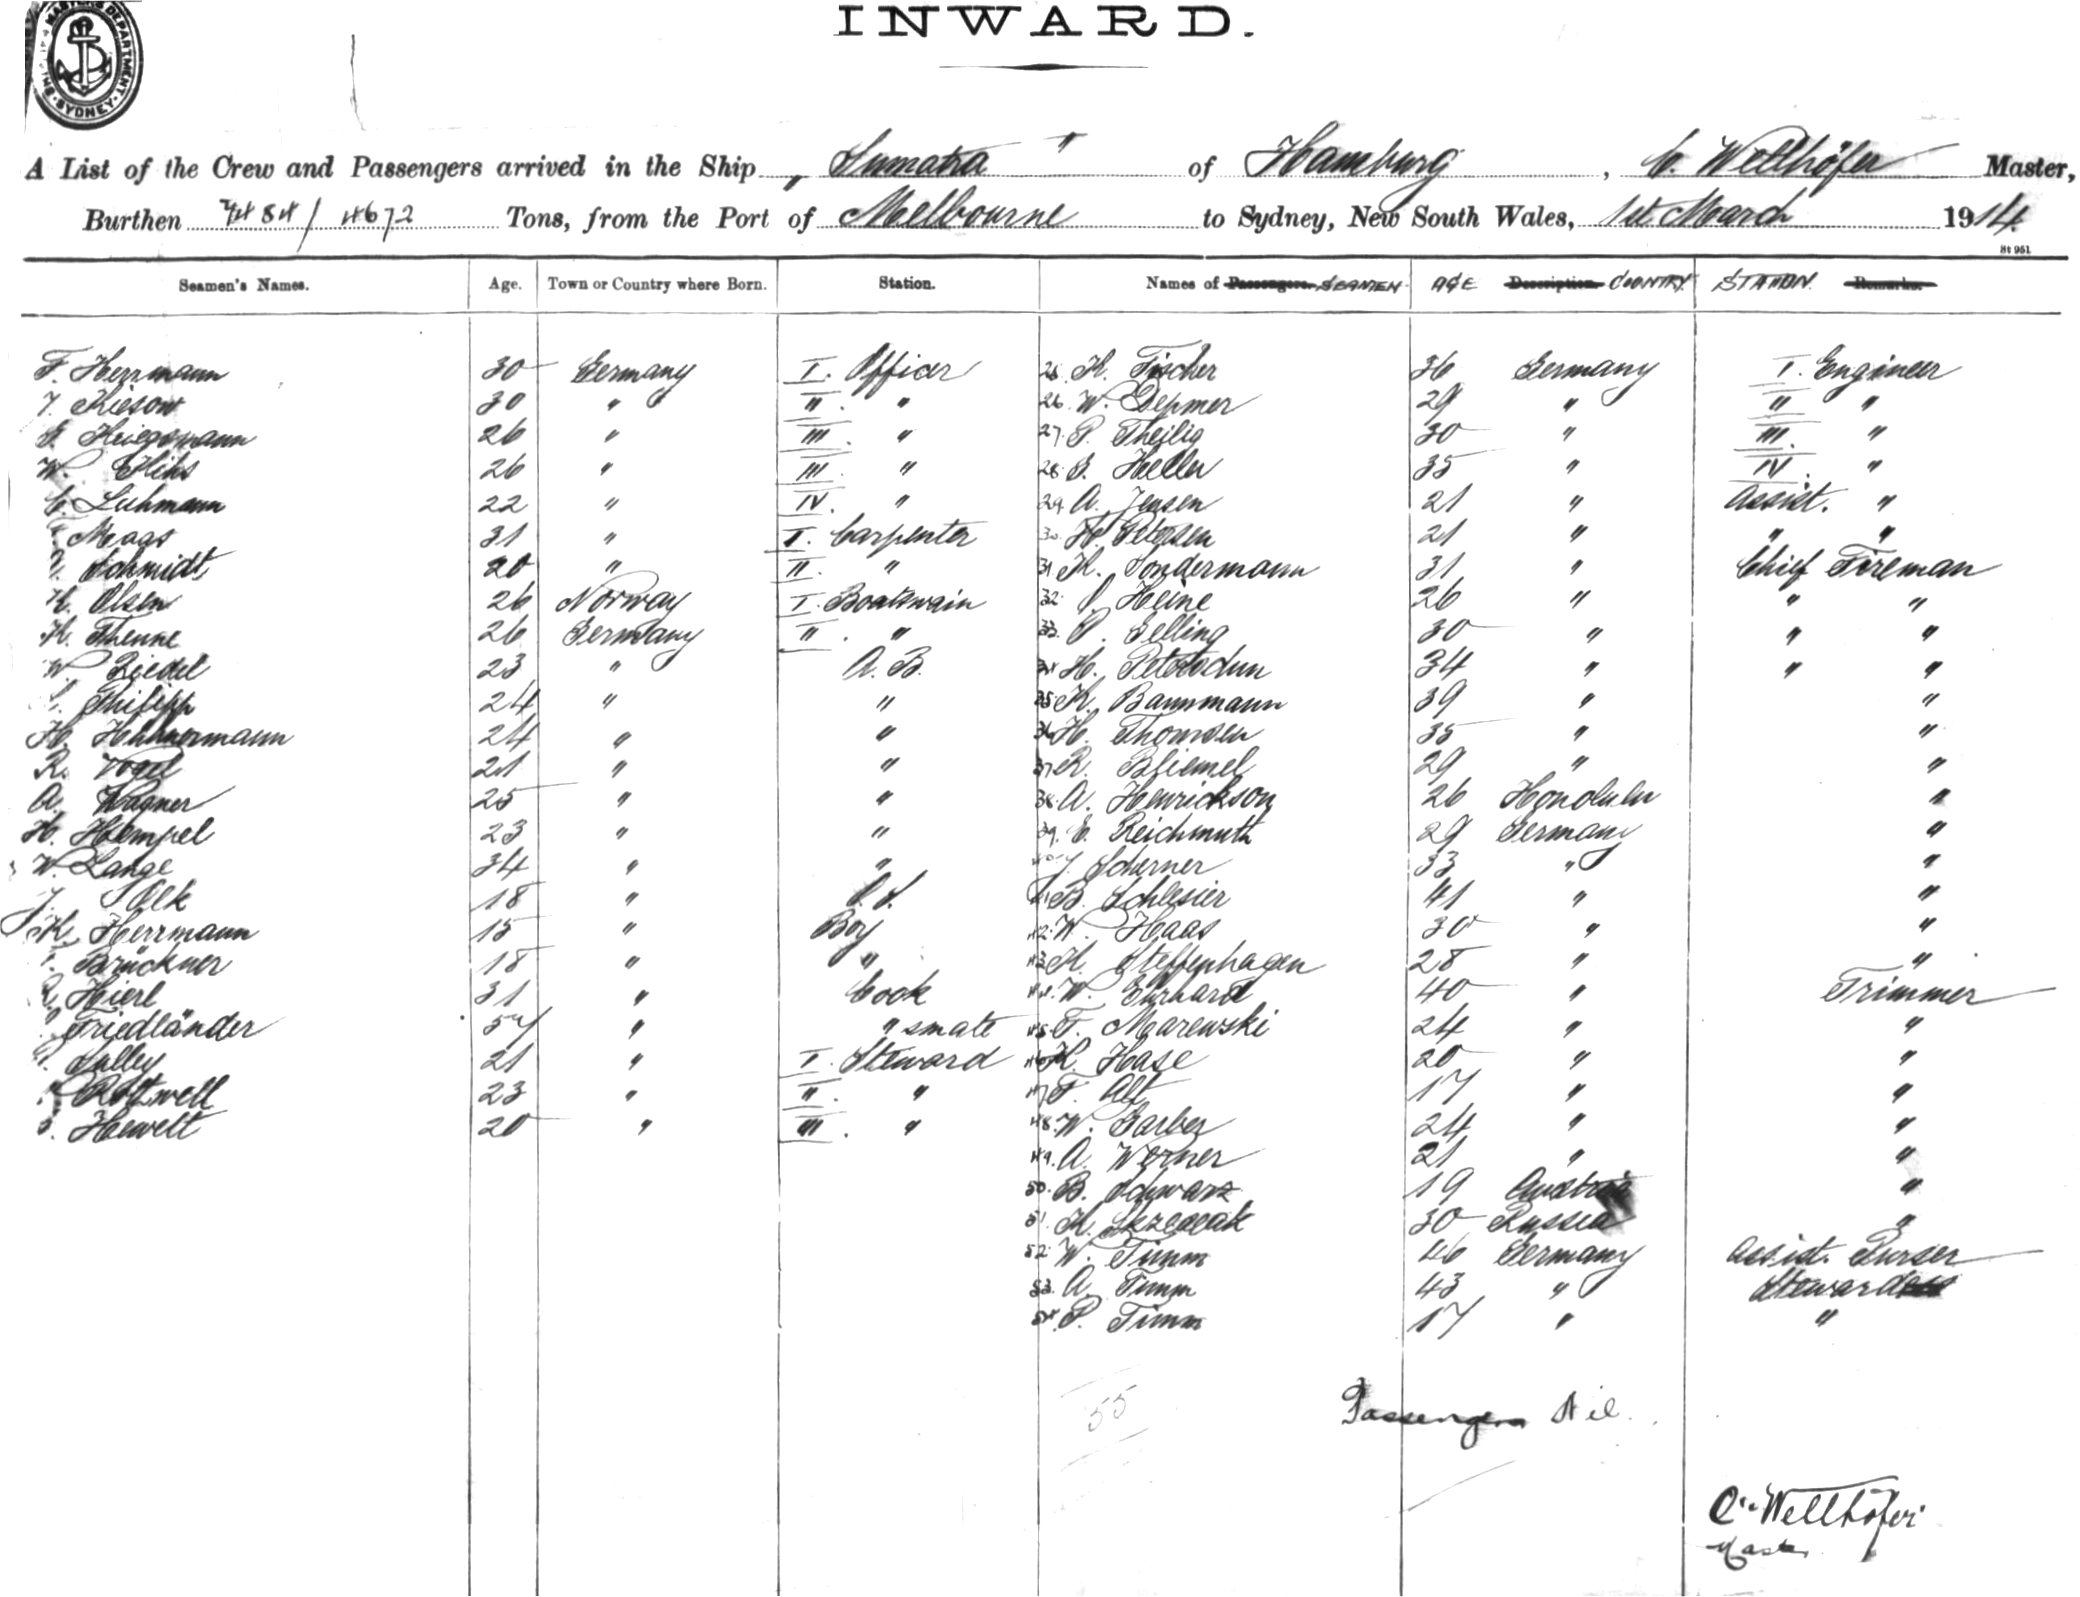 MASTERS DEPARTMENT SYDNEY
INWARD.
A List of the Crew and Passengers arrived in the Ship „ Sumatra " of Hamburg, C. Wellhöfer Master,
Burthen 7484/4672 Tons, from the Port of Melbourne to Sydney, New South Wales, 1st March 1914.
St 951
Seamen's Names. Age. Town or Country where Born. Station. Names of Passengers. SEAMEN AGE Description. COUNTRY STATION. Remarks.
F. Herrmann 30 Germany I. Officer 25. K. Fischer 36 Germany I. Engineer
Kiesow 30 " II. " 26. W. Depmer 29 " II "
Kriegsmann 26 " III. " 27. P. Theilig 30 " III. "
W. 26 " III. " 28. Heller 35 " IV. "
C. Luhmann 22 " IV. " 29. A. Jensen 21 " Assist. "
Maas 31 " I. Carpenter 30. H. Petersen 21 " " "
Schmidt 20 " II. " 31. K. Sondermann 31 " Chief Fireman
K. Olsen 26 Norway I. Boatswain 32. Heine 26 " " "
H. Thenne 26 Germany II. " 33. P. Gelling 30 " " "
W. Riedel 23 " A. B. 34. H. 34 " " "
Philipp 24 " " 35. K. Bannmann 39 " "
H. 24 " " 36. H. Thomsen 35 " "
R. Vogel 21 " " 37. R. Bliemel 29 " "
A. Wagner 25 " " 38. A. Henrickson 26 Honolulu "
H. Hempel 23 " " 39. E. Reichmuth 29 Germany "
W. Lange 34 " " 40. J. Scherner 33 " "
J. Olk 18 " O.S. 41. B. Schlesier 41 " "
K. Herrmann 15 " Boy 42. W. Haas 30 " "
Brückner 18 " " 43. H. Steffenhagen 28 " "
R. Hierl 31 " Cook 44. W. Ehrhard 40 " Trimmer
Friedländer 57 " " smate 45. F. Marewski 24 " "
Sulley 21 " I. Steward 46. K. Hase 20 " "
Rottwell 23 " II. " 47. F. Alt 17 " "
Hewelt 20 " III. " 48. W. Garber 24 " "
49. A. Werner 21 " "
50. B. Schwarz 19 Austria "
51. K. 30 Russia "
52. W. Timm 46 Germany Assist. Purser
53. A. Timm 43 " Stewardess
54. P. Timm 17 " "
55
Passengers Nil.
C. Wellhöfer
Master